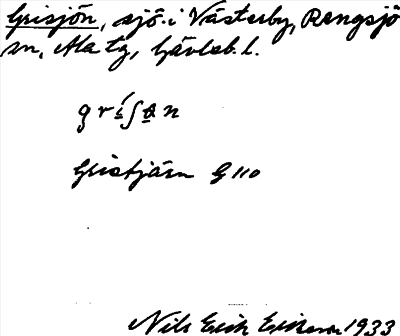 Grisjön, sjö. i Västerby, Rengsjö
sn, Ala tg, Gävleb. l.
g r í ʃ ɵ n
Gristjärn G 110
Nils Erik Eriksson 1933